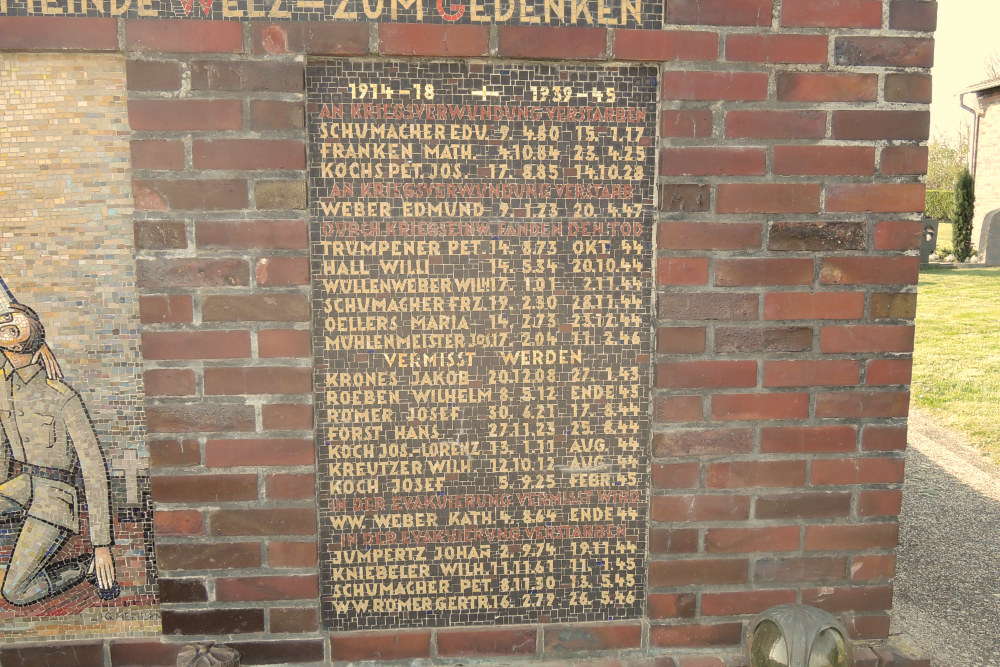 MEINDE WELZ-ZUM GEDENKEN
1914-18 + 1939-45
AN KRIEGSVERWUNDUNG VERSTARBEN
SCHUMACHER EDU. 9. 4.80 15. 1.17
FRANKEN MATH. 4.10.84 23. 4.25
KOCHS PET. JOS. 17. 8.85 14.10.84
AN KRIEGSVERWUNDUNG VERSTARB
WEBER EDMUND 9. 1.23 20. 4.47
DURCH KRIEGSEINW. FANDEN DEN TOD
TRUMPENER PET. 14. 8.73 OKT. 44
HALL WILLI 14. 5.34 20.10.44
WÜLLENWEBER WILH 17. 1.01 2.11.44
SCHUMACHER FRZ. 19. 2.30 28.11.44
OELLERS MARIA 14. 2.73 23.12.44
MÜHLENMEISTER JOS 17. 2.04 11. 2.46
VERMISST WERDEN
KRONES JAKOB 20.12.08 27. 1.43
ROEBEN WILHELM 8. 5.12 ENDE 43
RÖMER JOSEF 30. 6.21 17. 8.44
FORST HANS 27.11.23 25. 8.44
KOCH JOS.-LORENZ 13. 1.11 AUG. 44
KREUTZER WILH. 12.10.12 AUG. 44
KOCH JOSEF 5. 9.25 MÄRZ 45
IN DER EVAKUIERUNG VERMISST WIRD
WW. WEBER KATH. 4. 8.64 ENDE 44
IN DER EVAKUIERUNG VERSTARBEN
JUMPERTZ JOHAN 2. 9.74 19.11.44
KNIEBELER WILH. 11.11.61 11. 1.45
SCHUMACHER PET. 8.11.30 13. 5.45
WW. RÖMER GERTR. 16. 2.79 26. 5.46